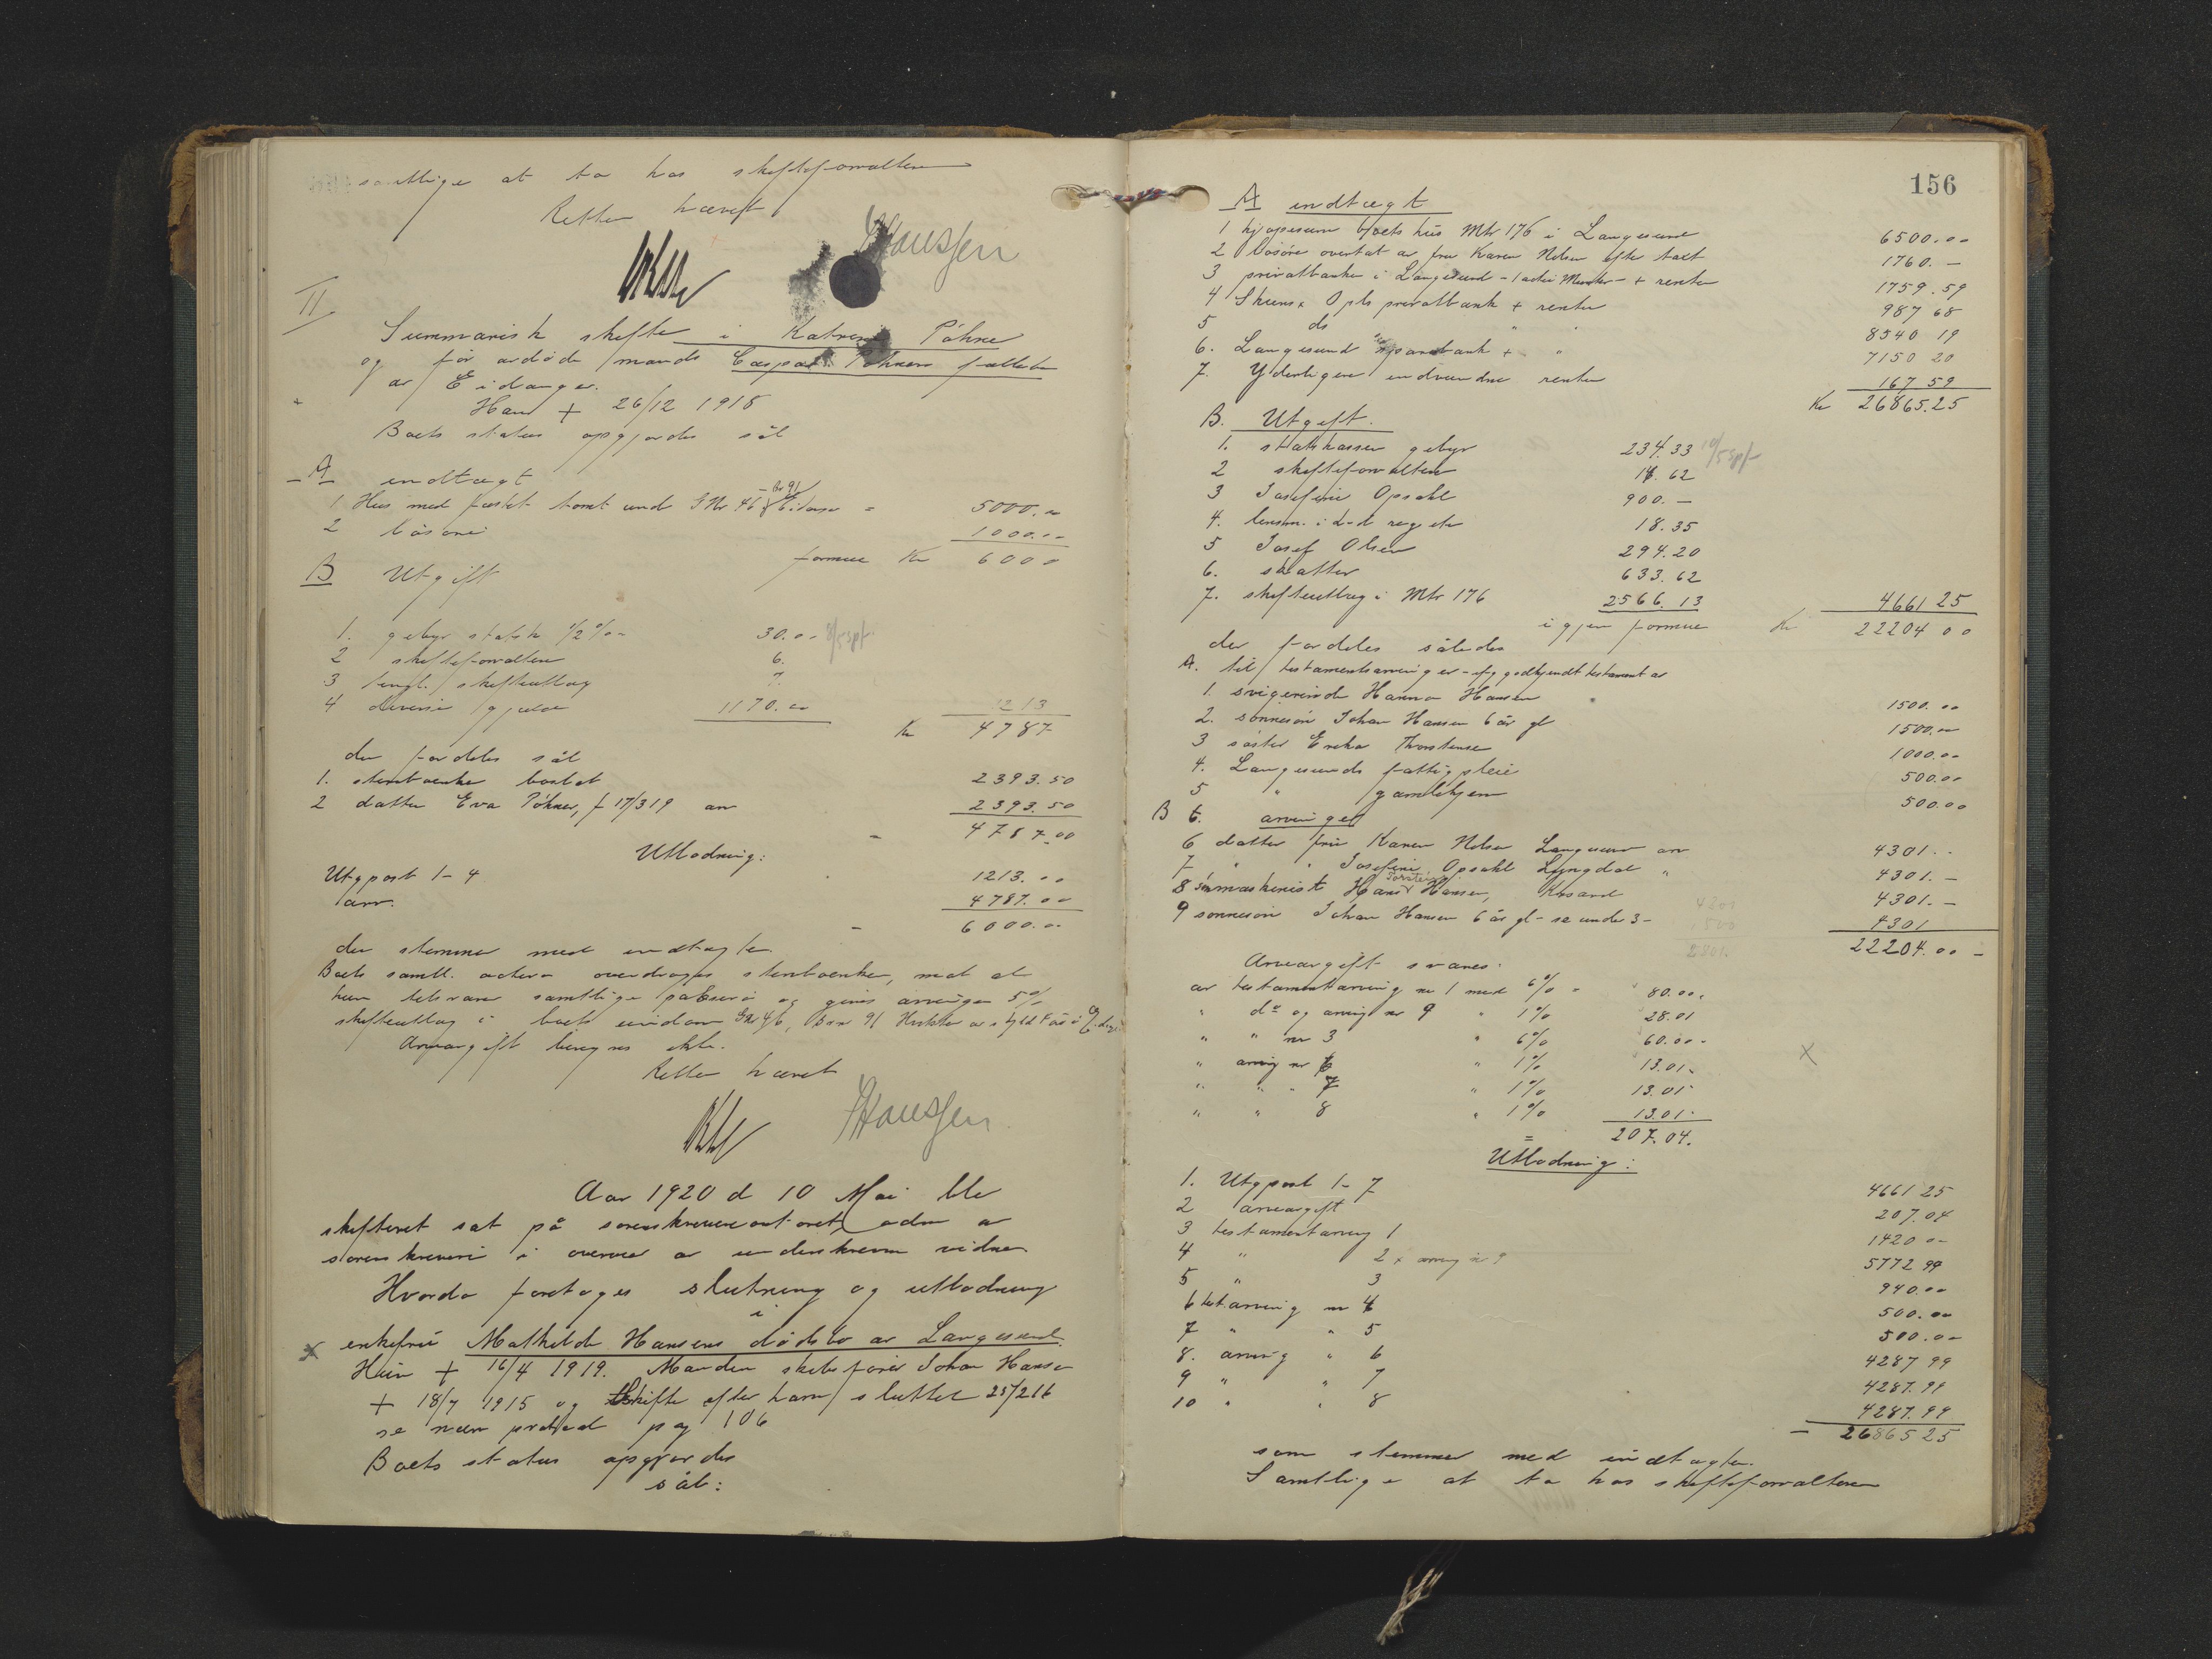 samtlige at ta hos skifteforvalteren
Retten hævet
Hanssen
II
Summarisk skifte i Katrine Pöhne
og før avdöde mands Caspar Pöhners fællesbo
av Eidanger.
Han + 26/12 1918
Boets status opgjordes sål
A indtægt
1 Hus med fæstet tomt und G Nr 46 Br 91 Eidanger = 5000.00
2 løsøre 1000.00
formue Kr 6000
B Utgift
1. gebyr statsk 1/2 % 30.00
2 skifteforvalteren 6.
3 tingl. skifteutlæg 7.
4 diverse gjæld 1170.00 1213
Kr 4787
der fordeles sål
1. sterboenke boslod 2393.50
2 datter Eva Pöhner, f 17/3 19 arv 2393.50
- 4787.00
Utlodning:
Utgpost 1-4 1213.00
arv. 4787.00
- 6000.00
der stemmer med indtægten
Boets samtl. activa overdrages sterboenken, mot at
hun tilsvarer samtlige passiva og gives arvingen 5%
skifteutlæg i boets eiendom GNr 46, Bnr 91
Arveavgift beregnes ikke.
Retten hævet
Hanssen
Aar 1920 d 10 Mai ble
skifteret sat på sorenskriverkontoret, adm av
sorenskriveren i overvær av underskrevne vidner
Hvorda foretoges slutning og utlodning
i
x enkefru Mathilde Hansens dødsbo av Langesund.
Hun + 16/4 1919. Manden skibsfører Johan Hansen
+ 18/7 1915 og skifte efter ham sluttet 25/2 16
se nærv protocol pag 106
Boets status opgjordes
sål:
156
A indtægt
1 kjøpesum boets hus Mtr 176 i Langesund 6500.00
2 løsøre overtat av fru Karen Nilsen efter takst 1760.-
3 privatbanken i Langesund + renter 1759.59
4 Skiens & Opls privatbank + renter 987 68
5 do " " 8540 19
6. Langesund sparebank + " 7150 20
7. Yderligere indvundne renter 167 59
Kr 26865.25
B. Utgift.
1. statskassen gebyr 234.33 10/5 spf
2 skifteforvalteren 14.62
3 Josefine Opsahl 900.-
4. lensm. i L-d regndr 18.35
5 Josef Olsen 294.20
6. skatter 633.62
7. skifteutlæg i Mtr 176 2566.13 4661 25
igjen formue Kr 22204 00
der fordeles således
A. til testamentsarvinger - efg godkjendt testament av
1. svigerinde Hanna Hansen 1500.00
2. sønnesøn Johan Hansen 6 år gl 1500.00
3 søster Ereka Thorstensen 1000.00
4. Langesunds fattigpleie 500.00
5 " gamlehjem 500.00
B 6. arvinger
6 datter fru Karen Nilsen Langesund arv 4301.-
7 " " Josefine Opsahl Lyngdal " 4301.-
8 sön maskinist Hans Torstein Hansen, Krsand 4301.-
9 sønnesøn Johan Hansen 6 år gl - se under 3- 4301
22204.00 -
Arveavgift svares:
av testamentarving nr 1 med 6% = 80.00.
" do og arving nr 9 " 1% 28.01
" " nr 3 " 6% 60.00
" arving nr 6 " 1% 13.01
" " " 7 " 1% 13.01
" " 8 " 1% 13.01
= 207.04.
x
Utlodning:
1. Utgpost 1-7 4661 25
2 arveavgift 207.04
3 testamentarving 1 1420 00
4 " 2 x arving nr 9 5772 99
5 " 3 940.00
6 test arving nr 4 500.00
7 " " 5 500.00
8. arving " 6 4287 99
9 " " 7 4287.99
10 " " 8 4287.99
- 26865 25
som stemmer med indtægten.
Samtlige at ta hos skifteforvalteren